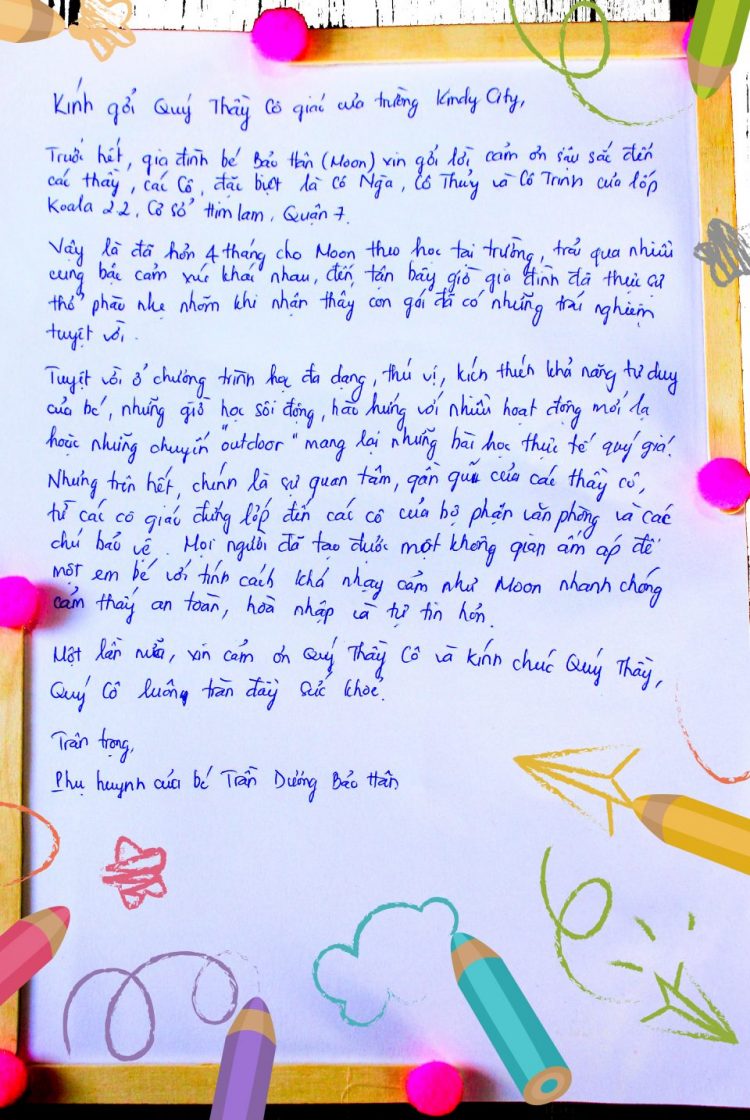 Kính gởi Quý Thầy Cô giáo của trường Kindy City,
Trước hết, gia đình bé Bảo Hân (Moon) xin gởi lời cảm ơn sâu sắc đến
các thầy, các Cô, đặc biệt là Cô Nga, Cô Thủy và Cô Trinh của lớp
Koala 22, Cơ Sở Him Lam, Quận 7.
Vậy là đã hơn 4 tháng cho Moon theo học tại trường, trải qua nhiều
cung bậc cảm xúc khác nhau, đến tận bây giờ gia đình đã thực sự
thở phào nhẹ nhõm khi nhận thấy con gái đã có những trải nghiệm
tuyệt vời.
Tuyệt vời ở chương trình học đa dạng, thú vị, kích thích khả năng tư duy
của bé, những giờ học sôi động, hào hứng với nhiều hoạt động mới lạ
hoặc những chuyến "outdoor" mang lại những bài học thực tế quý giá.
Nhưng trên hết, chính là sự quan tâm, gần gũi của các thầy cô,
từ các cô giáo đứng lớp đến các cô của bộ phận văn phòng và các
chú bảo vệ. Mọi người đã tạo được một không gian ấm áp để
một em bé với tính cách khá nhạy cảm như Moon nhanh chóng
cảm thấy an toàn, hoà nhập và tự tin hơn.
Một lần nữa, xin cảm ơn Quý Thầy Cô và kính chúc Quý Thầy,
Quý Cô luôn tràn đầy sức khoẻ.
Trân trọng,
Phụ huynh của bé Trần Dương Bảo Hân